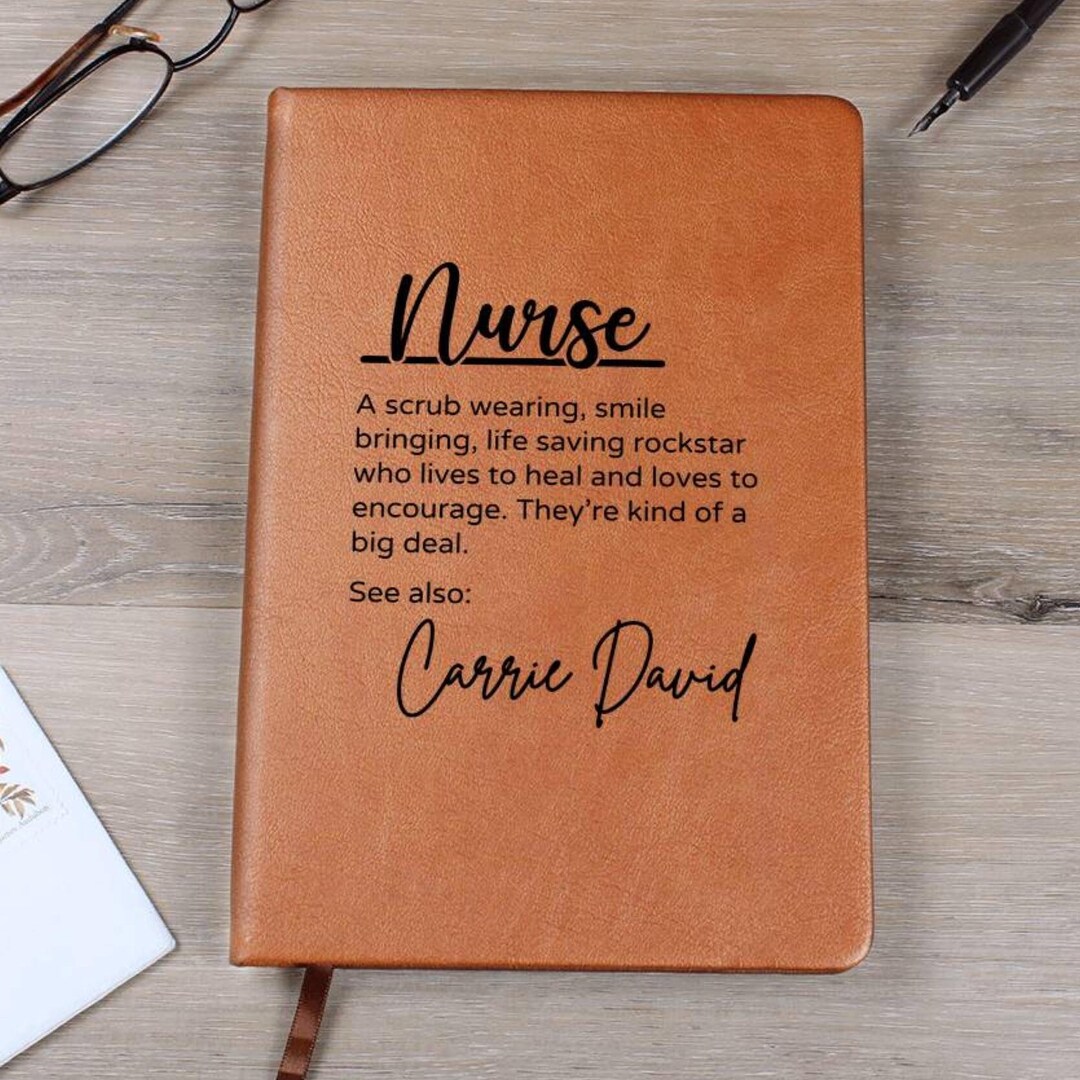 Nurse
A scrub wearing, smile
bringing, life saving rockstar
who lives to heal and loves to
encourage. They're kind of a
big deal.
See also:
Carrie David